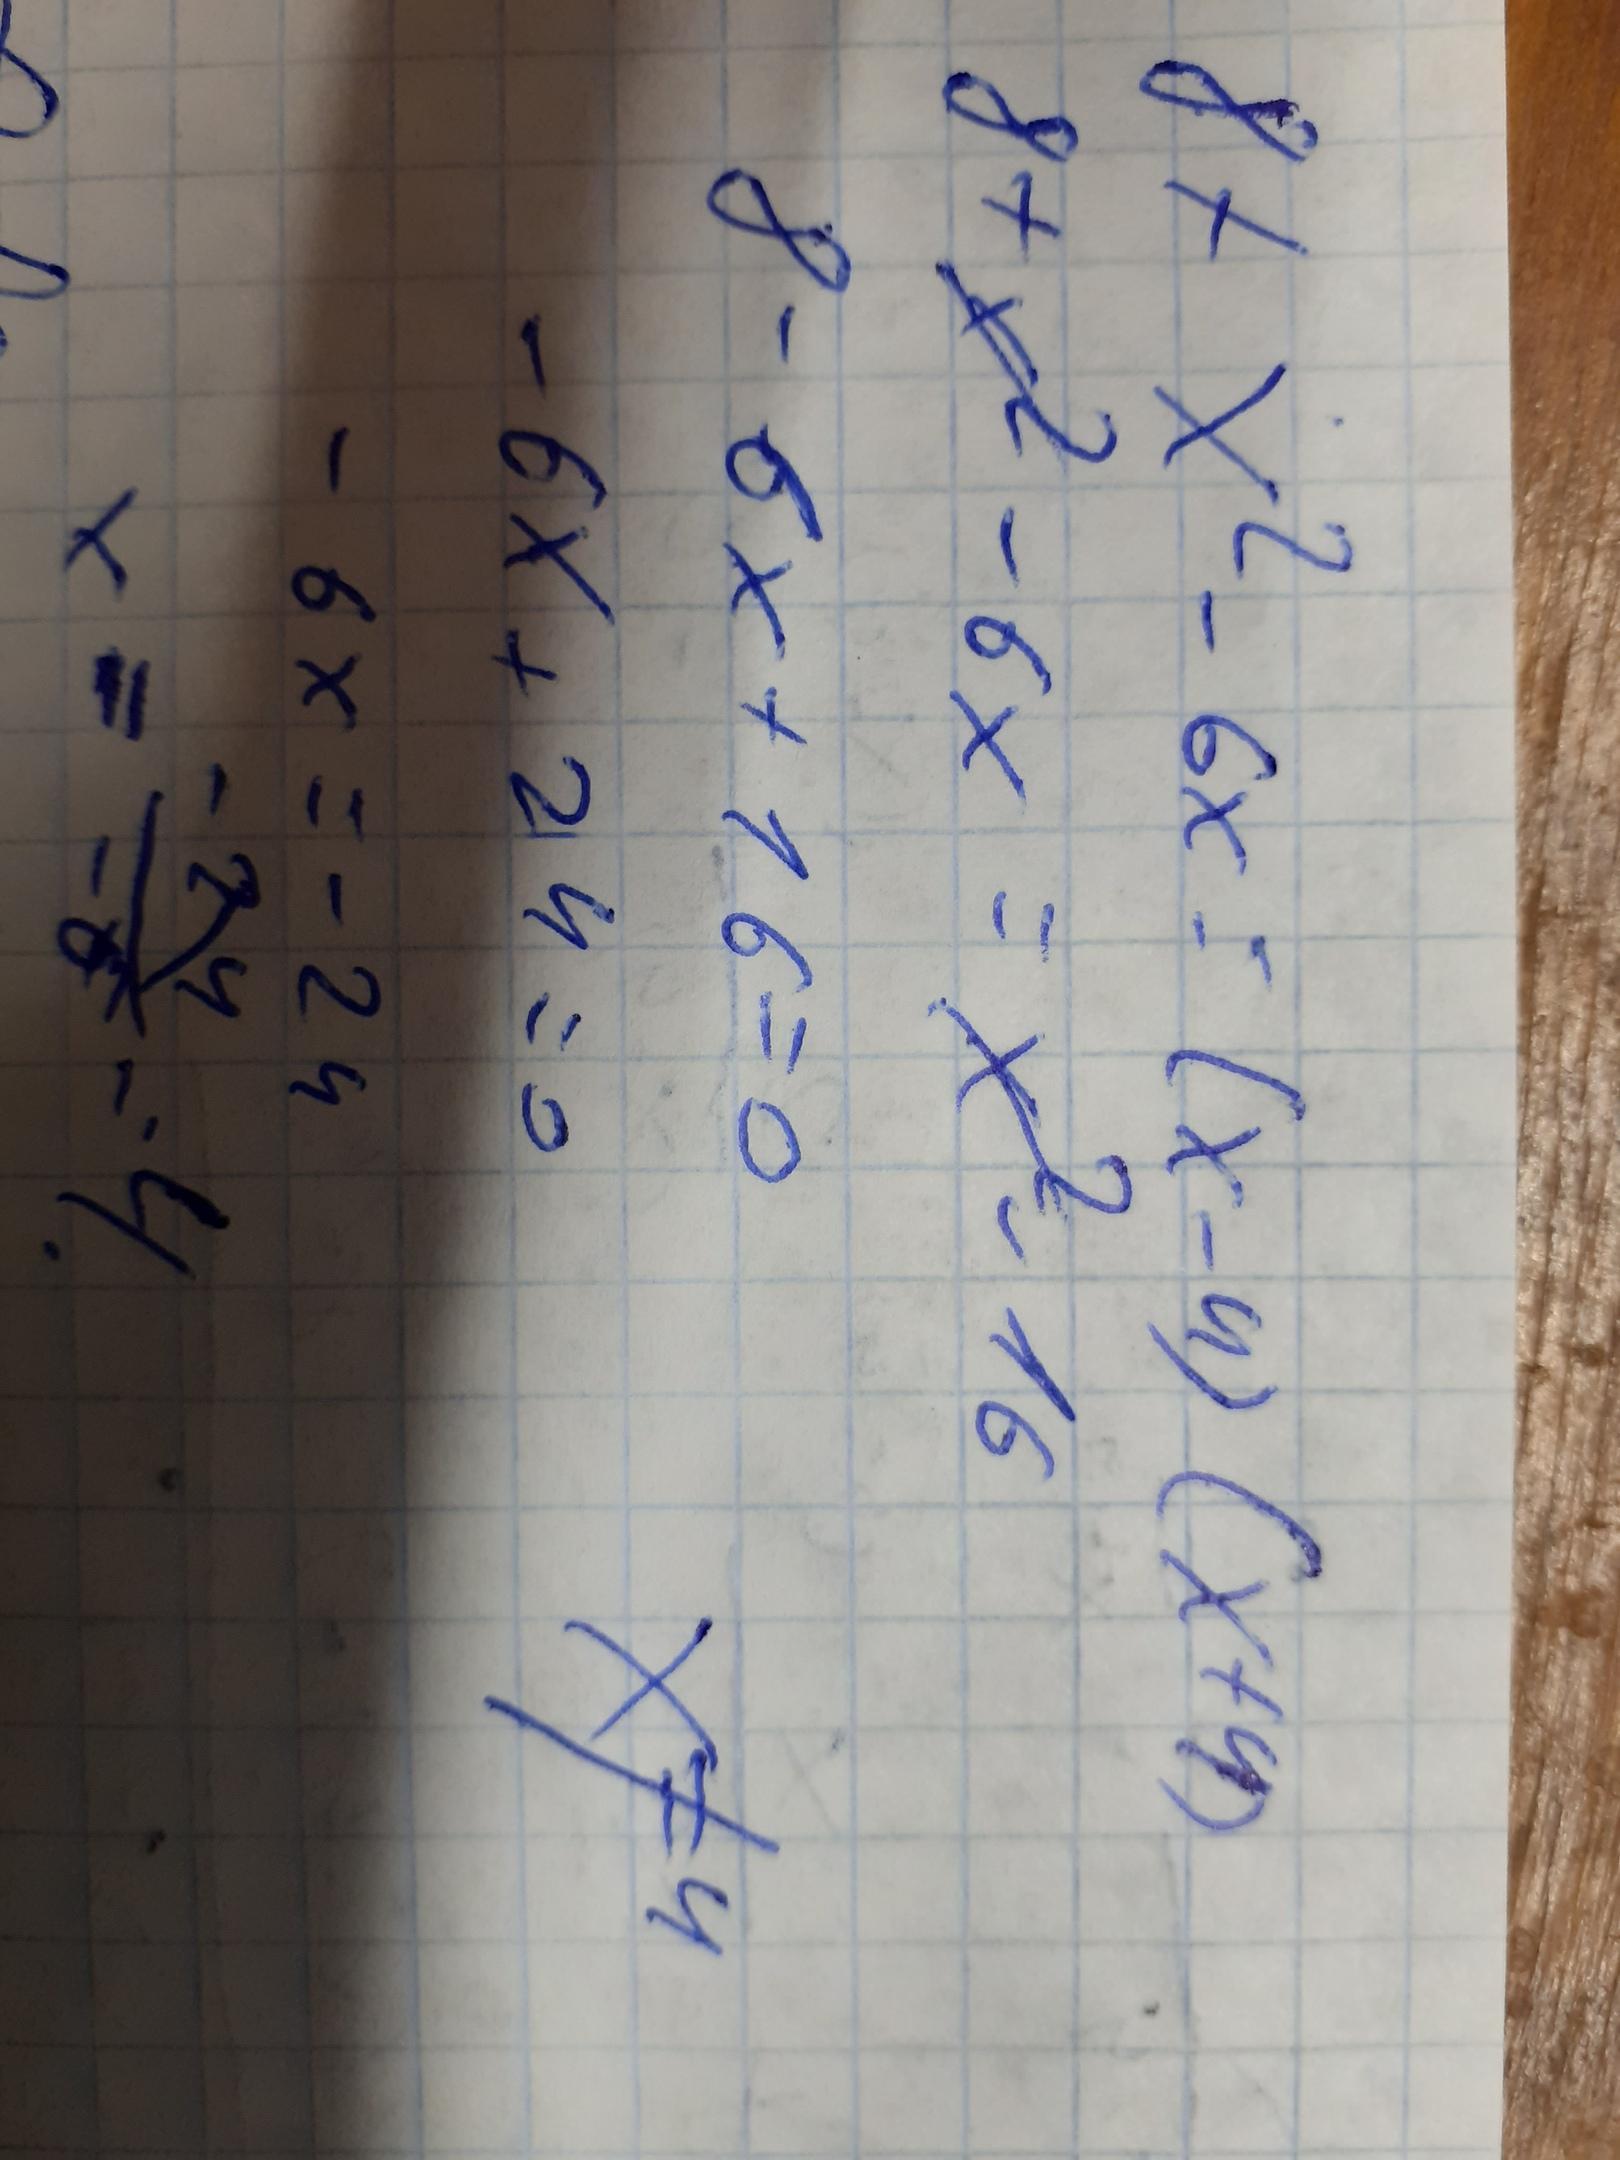 8 + x² - 6x = (x - 4) (x + 4)
8 + x² - 6x = x² - 16
8 - 6x + 16 = 0
- 6x + 24 = 0
x ≠ 4
- 6x = - 24
x = -24/-6 = 4